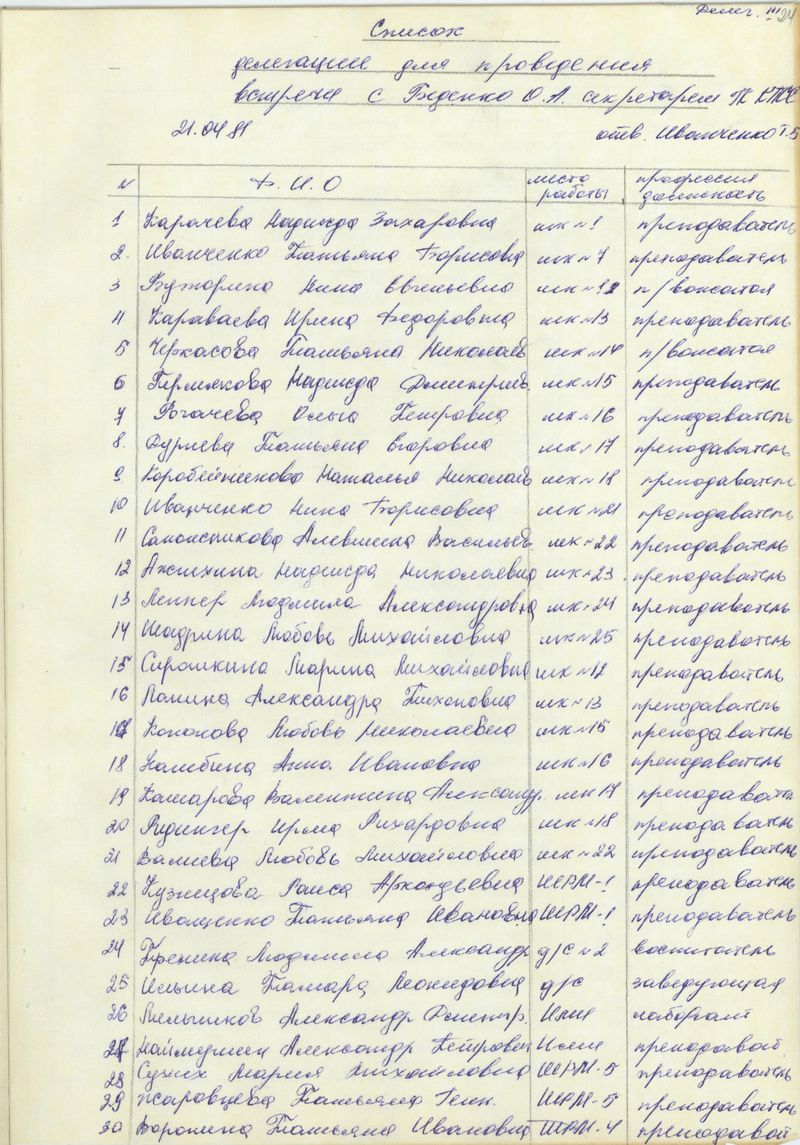 Делег. 24
Список
делегации для проведения
встречи с Беденко О.А. секретарем
21.04.81 отв. Иванченко Т.Б
N Ф. И. О место работы профессия должность
1 Карачева Надежда Захаровна шк №1 преподаватель
2. Иванченко Татьяна Борисовна шк №7 преподаватель
3 Нина Евгеньевна шк №12 п/вожатая
4 Караваева Ирина Федоровна шк №13 преподаватель
5 Черкасова Татьяна Николаев шк №14 п/вожатая
6 Пермякова Надежда Дмитриев. шк №15 преподаватель
7 Рогачева Ольга Петровна шк №16 преподаватель
8. Дурнева Татьяна Егоровна шк №17 преподаватель
9 Коробейникова Наталья Николаев шк №18 преподаватель
10 Иванченко Нина Борисовна шк №21 преподаватель
11 Сапожникова Алевтина Васильев. шк №22 преподаватель
12 Надежда Николаевна шк №23. преподаватель
13 Леннер Людмила Александровна шк №24 преподаватель
14 Шадрина Любовь Михайловна шк №25 преподаватель
15 Сироткина Марина Михайловна шк №12 преподаватель
16 Панина Александра Тихоновна шк №13 преподаватель
17 Кононова Любовь Николаевна шк №15 преподаватель
18 Анна Ивановна шк №16 преподаватель
19 Комарова Валентина Александр. шк 17 преподаватель
20 Ридингер Ирма Рихардовна шк №18 преподаватель
21 Валиева Любовь Михайловна шк №22 преподаватель
22 Кузнецова Раиса Аркадьевна ШРМ-1 преподаватель
23 Иващенко Татьяна Ивановна ШРМ-1 преподаватель
24 Людмила Александр. д/с №2 воспитатель
25 Ильина Тамара Леонидовна д/с заведующая
26 Александр Дмитр. лаборант
27 Александр Петрович преподават.
28 Сухих Мария Михайловна ШРМ-5 преподаватель
29 Жаровцева Татьяна Генн. ШРМ-5 преподаватель
30 Воронина Татьяна Ивановна ШРМ-4 преподават